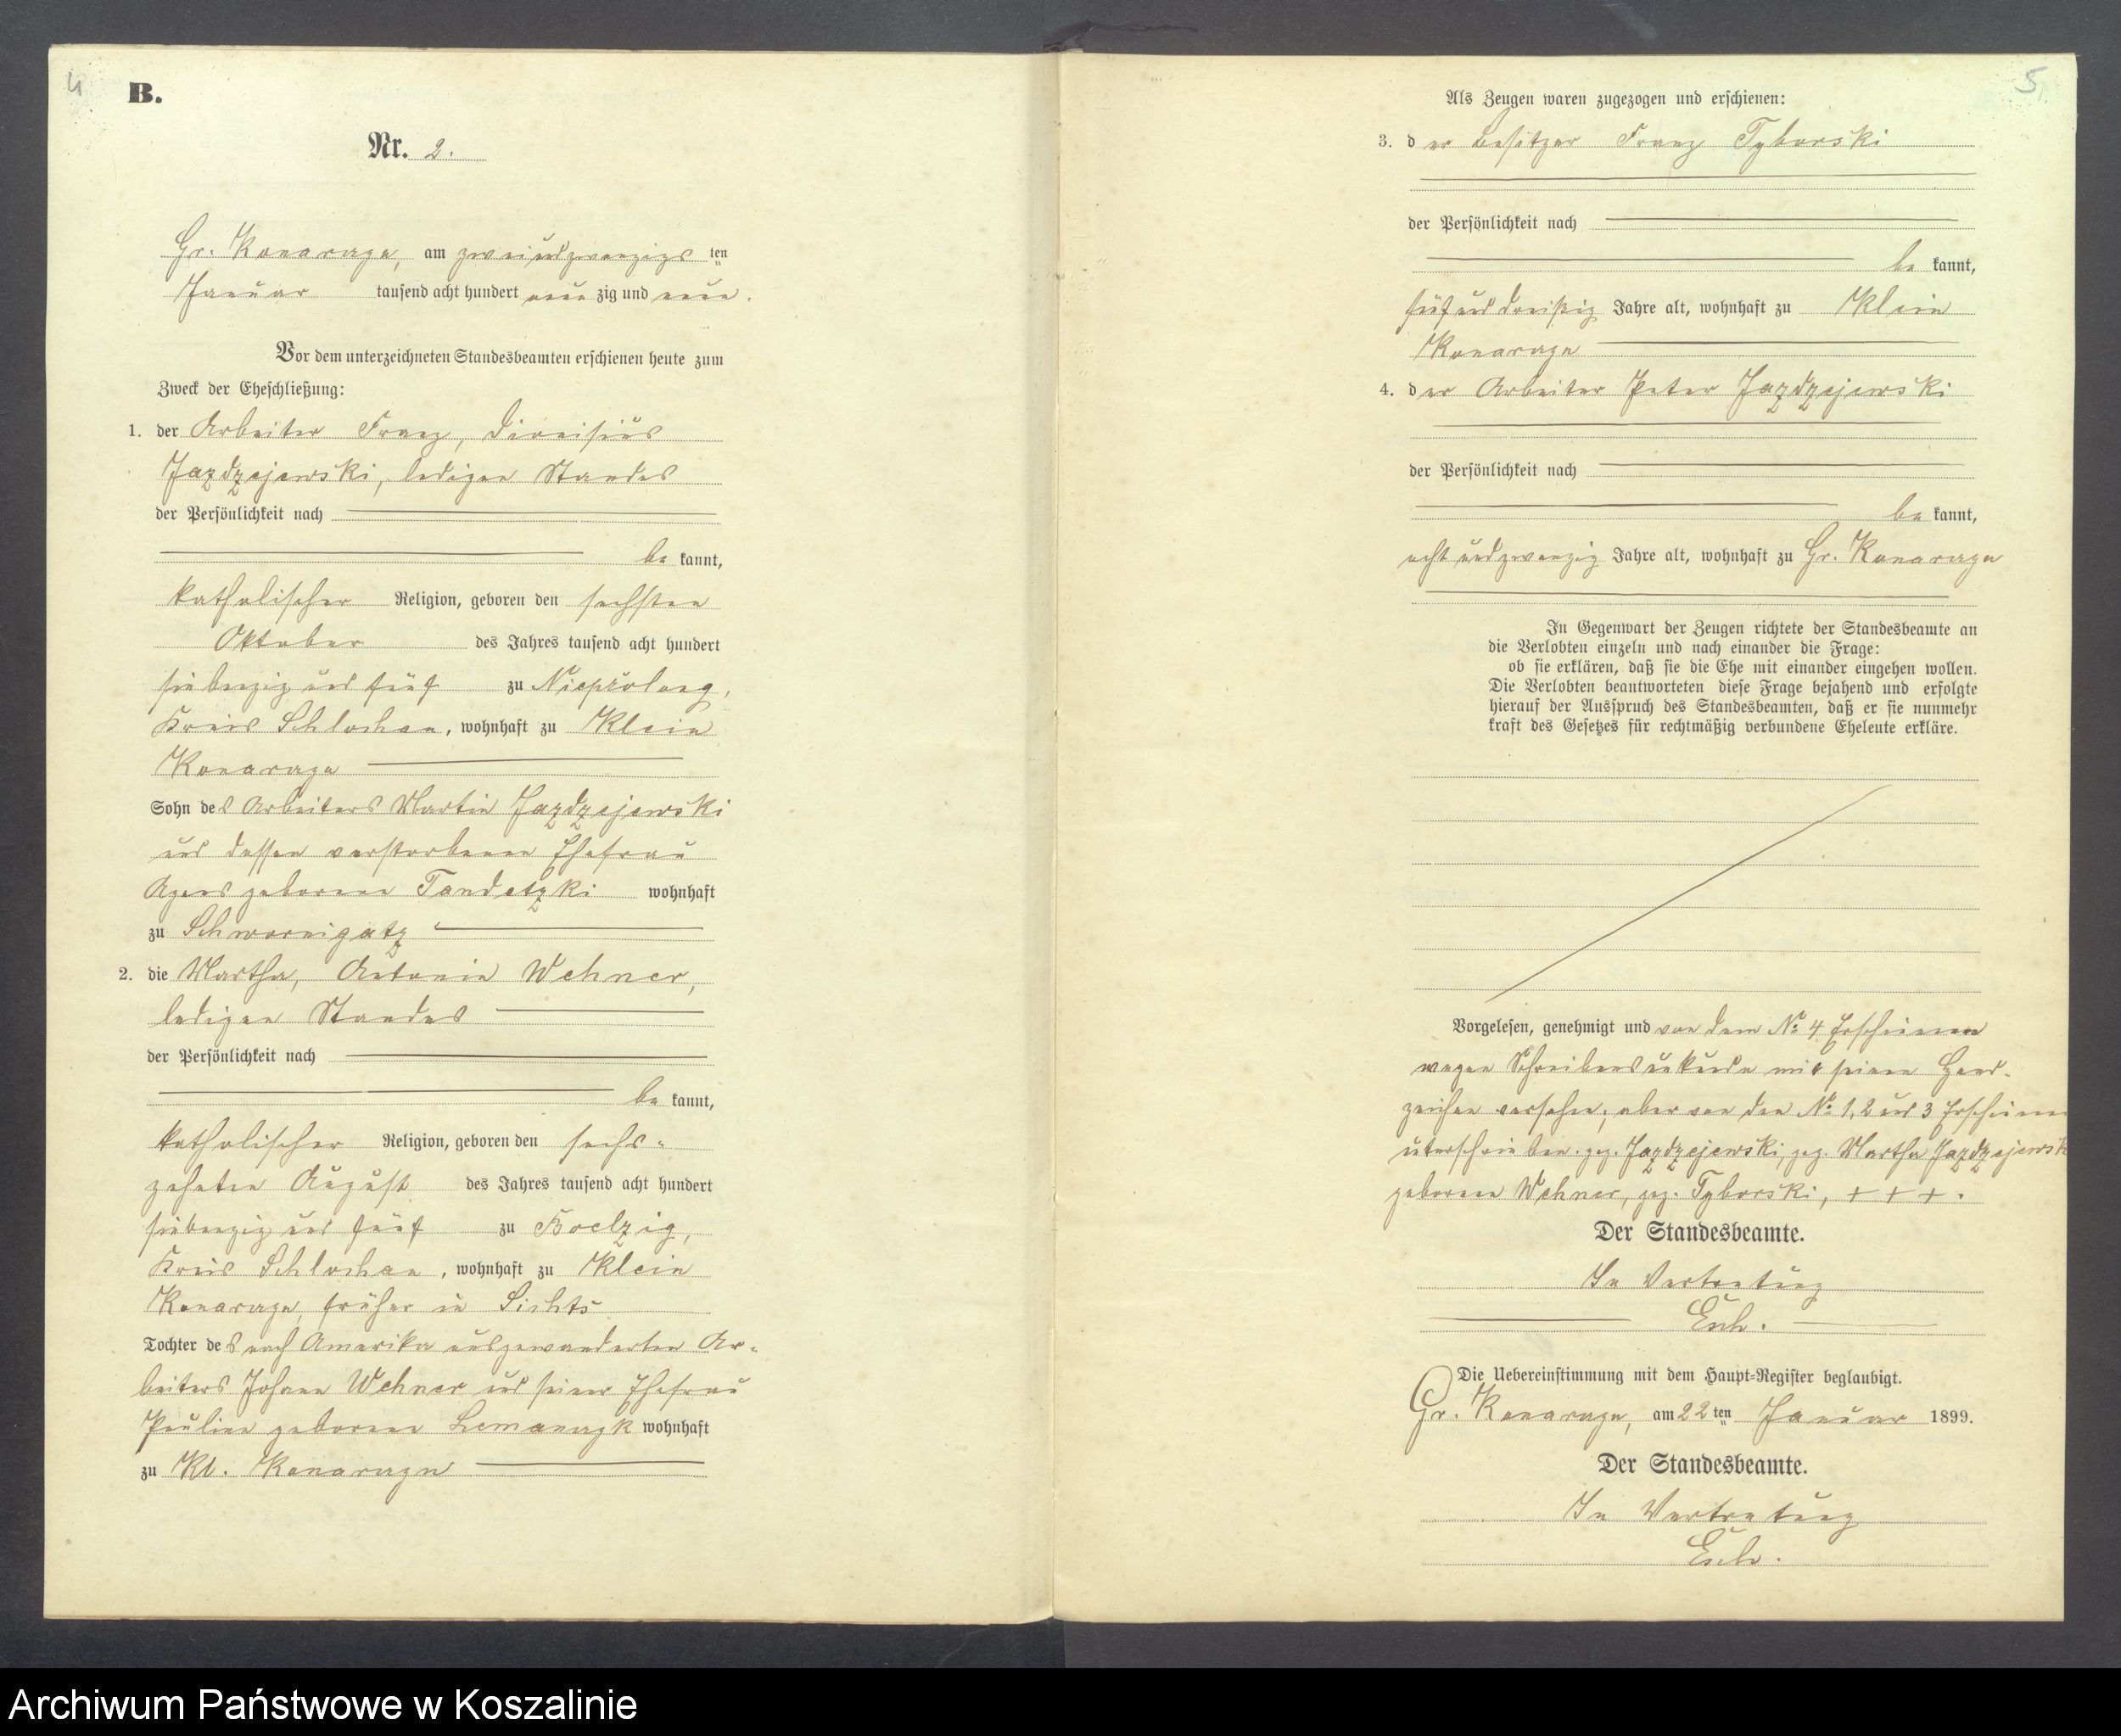 4
B.
Nr. 2.
Gr. Konarzyn, am zweiundzwanzigs ten
Januar tausend acht hundert neun zig und neun.
Vor dem unterzeichneten Standesbeamten erschienen heute zum
Zweck der Eheschließung:
1. der Arbeiter Franz, Dionisius
Jazdzejewski, ledigen Standes
der Persönlichkeit nach
be kannt,
katholischer Religion, geboren den sechsten
Oktober des Jahres tausend acht hundert
siebenzig und fünf zu Niepruloeg,
Kreis Schlochau, wohnhaft zu Klein
Konarzyn
Sohn des Arbeiters Martin Jazdzejewski
und dessen verstorbenen Ehefrau
Agnes geborene Tandetzki wohnhaft
zu Schwornigatz
2. die Martha, Antonie Wehner,
ledigen Standes
der Persönlichkeit nach
be kannt,
katholischer Religion, geboren den sechs-
zehnten August des Jahres tausend acht hundert
siebenzig und fünf zu Boelzig,
Kreis Schlochau, wohnhaft zu Klein
Konarzyn, früher in Sichts
Tochter des nach Amerika ausgewanderten Ar-
beiters Johann Wehner und seiner Ehefrau
Pauline geborene Lemanczyk wohnhaft
zu Kl. Konarzyn
5
Als Zeugen waren zugezogen und erschienen:
3. der Besitzer Franz Tyborski
der Persönlichkeit nach
be kannt,
fünfunddreißig Jahre alt, wohnhaft zu Klein
Konarzyn
4. der Arbeiter Peter Jazdzejewski
der Persönlichkeit nach
be kannt,
achtundzwanzig Jahre alt, wohnhaft zu Gr. Konarzyn
In Gegenwart der Zeugen richtete der Standesbeamte an
die Verlobten einzeln und nach einander die Frage:
ob sie erklären, daß sie die Ehe mit einander eingehen wollen.
Die Verlobten beantworteten diese Frage bejahend und erfolgte
hierauf der Ausspruch des Standesbeamten, daß er sie nunmehr
kraft des Gesetzes für rechtmäßig verbundene Eheleute erkläre.
Vorgelesen, genehmigt und von dem No. 4 Erschienenen
wegen Schreibensunkunde mit seinem Hand-
zeichen versehen, aber von den No. 1, 2 und 3 Erschienenen
unterschrieben. gez. Jazdzejewski, gez. Martha Jazdzejewski
geborene Wehner, gez. Tyborski, + + +.
Der Standesbeamte.
In Vertretung
Esch.
Die Uebereinstimmung mit dem Haupt-Register beglaubigt.
Gr. Konarzyn, am 22 ten Januar 1899.
Der Standesbeamte.
In Vertretung
Esch.
Archiwum Państwowe w Koszalinie